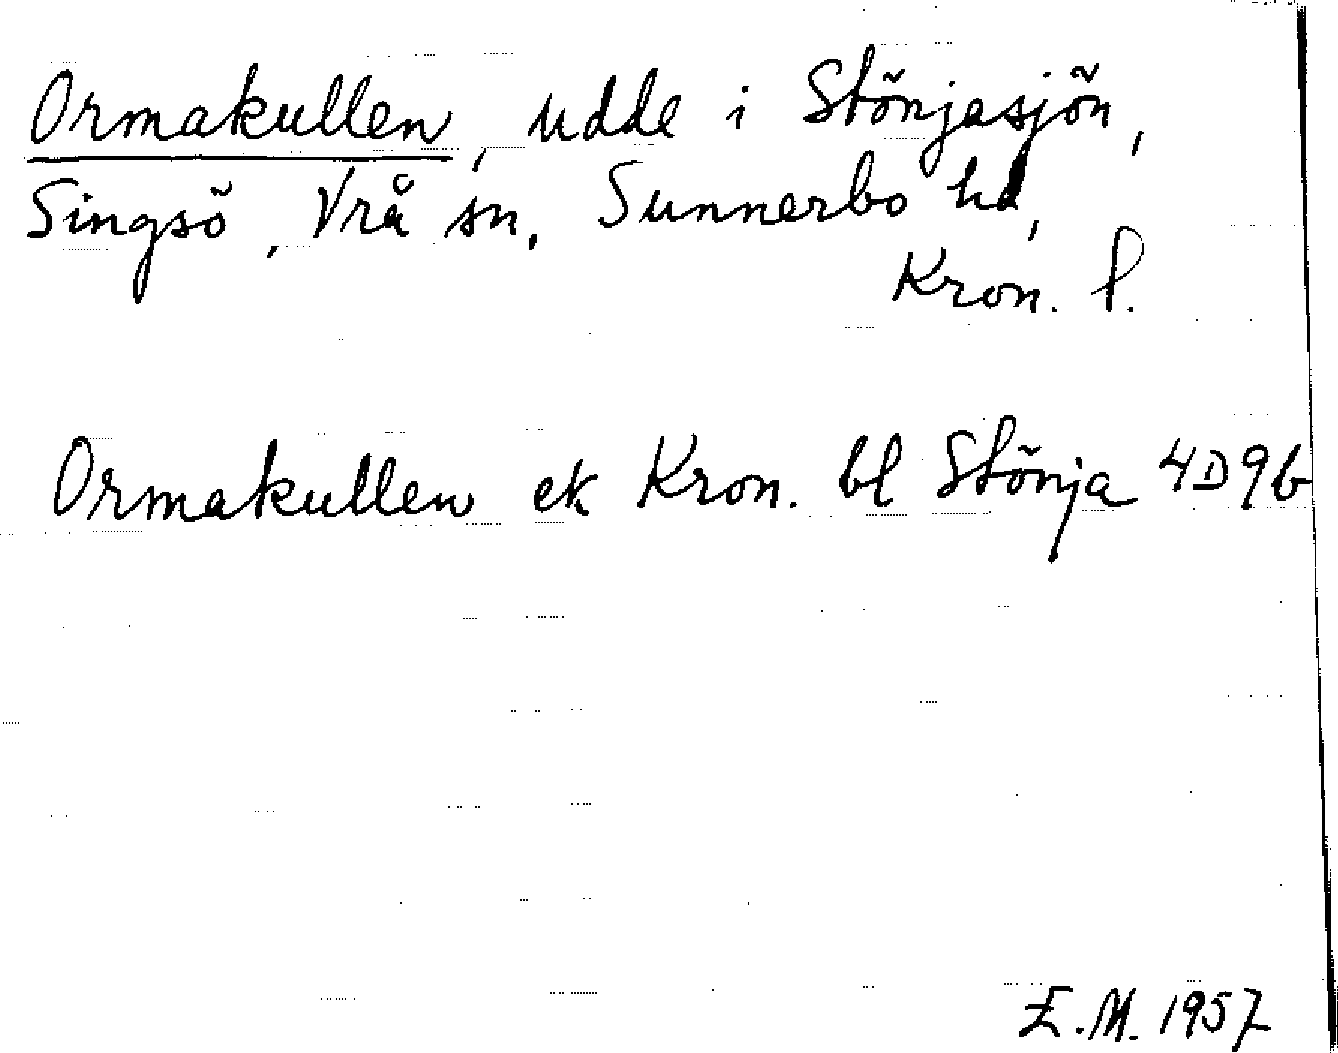 Ormakullen, udde i Stönjasjön,
Singsö, Vrå sn, Sunnerbo hd,
Kron. l.
Ormakullen ek Kron. bl Stönja 4D9b
E.M. 1957